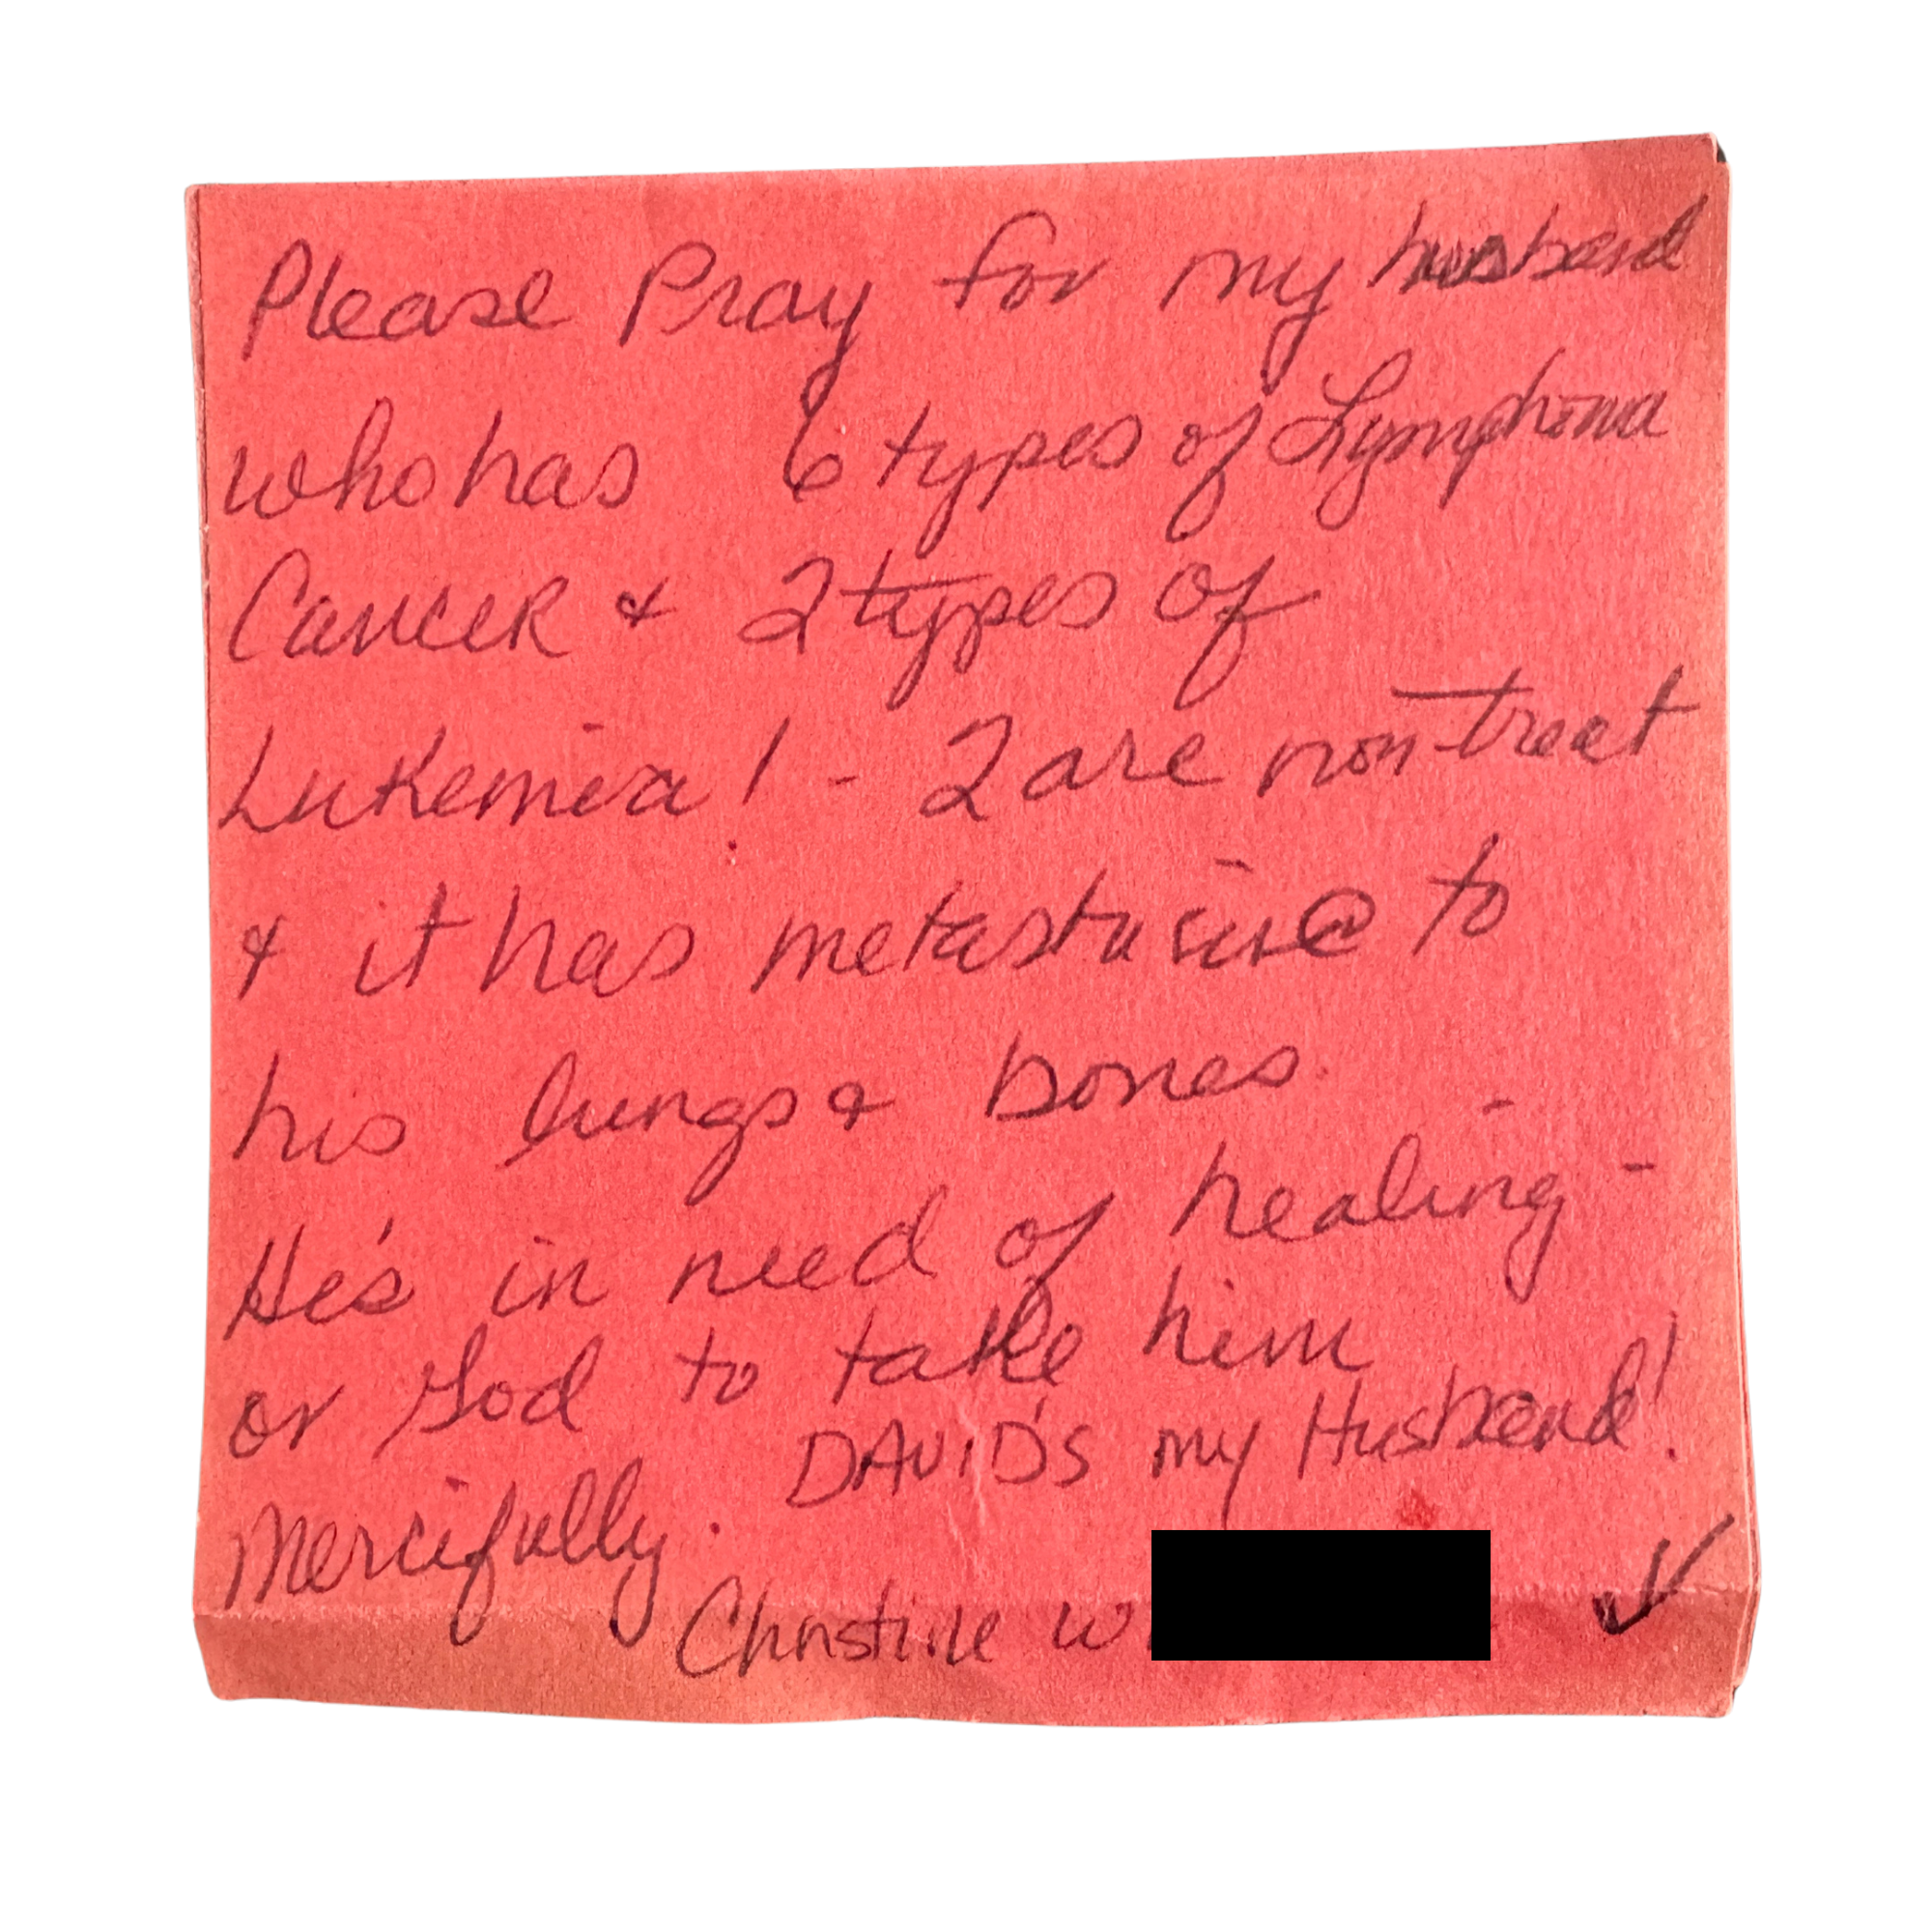 Please Pray for my husband
who has 6 types of Lymphoma
Cancer & 2 types of
Lukemia! - 2 are non treat
& it has metastasis@ to
his lungs & bones.
He's in need of healing -
or God to take him
DAVID'S my Husband!
Mercifully.
Christine W